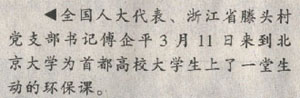 ◀全国人大代表、浙江省滕头村
党支部书记傅企平3月11日来到北
京大学为首都高校大学生上了一堂生
动的环保课。